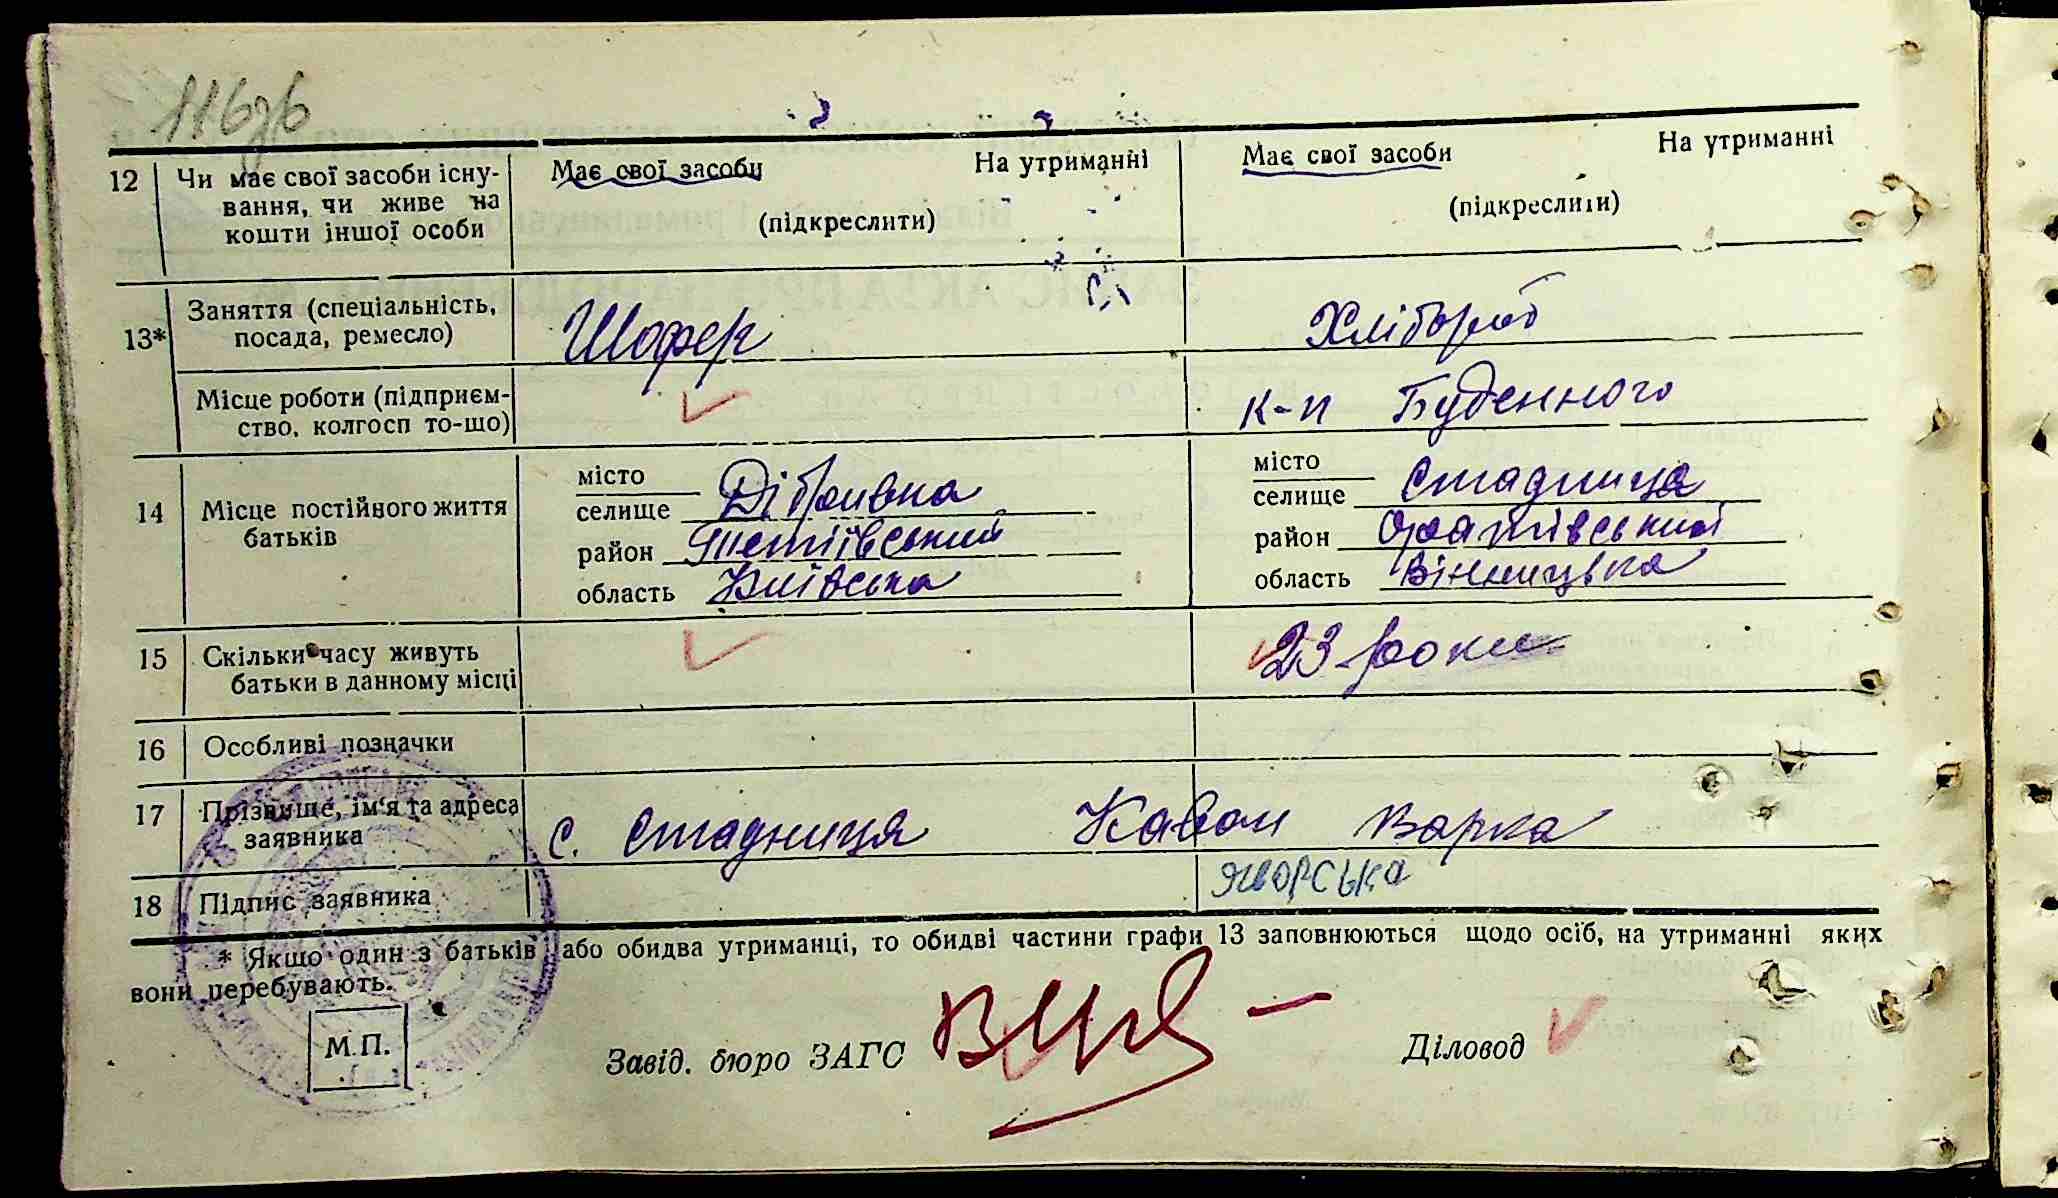 116зв
12 Чи має свої засоби існу- Має свої засоби На утриманні Має свої засоби На утриманні
вання, чи живе на (підкреслити) (підкреслити)
кошти іншої особи
13* Заняття (спеціальність, Шофер Хлібороб
посада, ремесло)
Місце роботи (підприєм- к-п Буденного
ство, колгосп то-що)
14 Місце постійного життя
батьків
місто
селище Дібривка
район Тетіївський
область Київська
місто
селище Стадниця
район Оратівський
область Вінницька
15 Скільки часу живуть 23 роки
батьки в данному місці
16 Особливі позначки
17 Прізвище, ім'я та адреса с. Стадниця Кавон Варка
заявника
18 Підпис заявника Яворська
* Якщо один з батьків або обидва утриманці, то обидві частини графи 13 заповнюються щодо осіб, на утриманні яких
вони перебувають.
М.П.
Завід. бюро ЗАГС Діловод